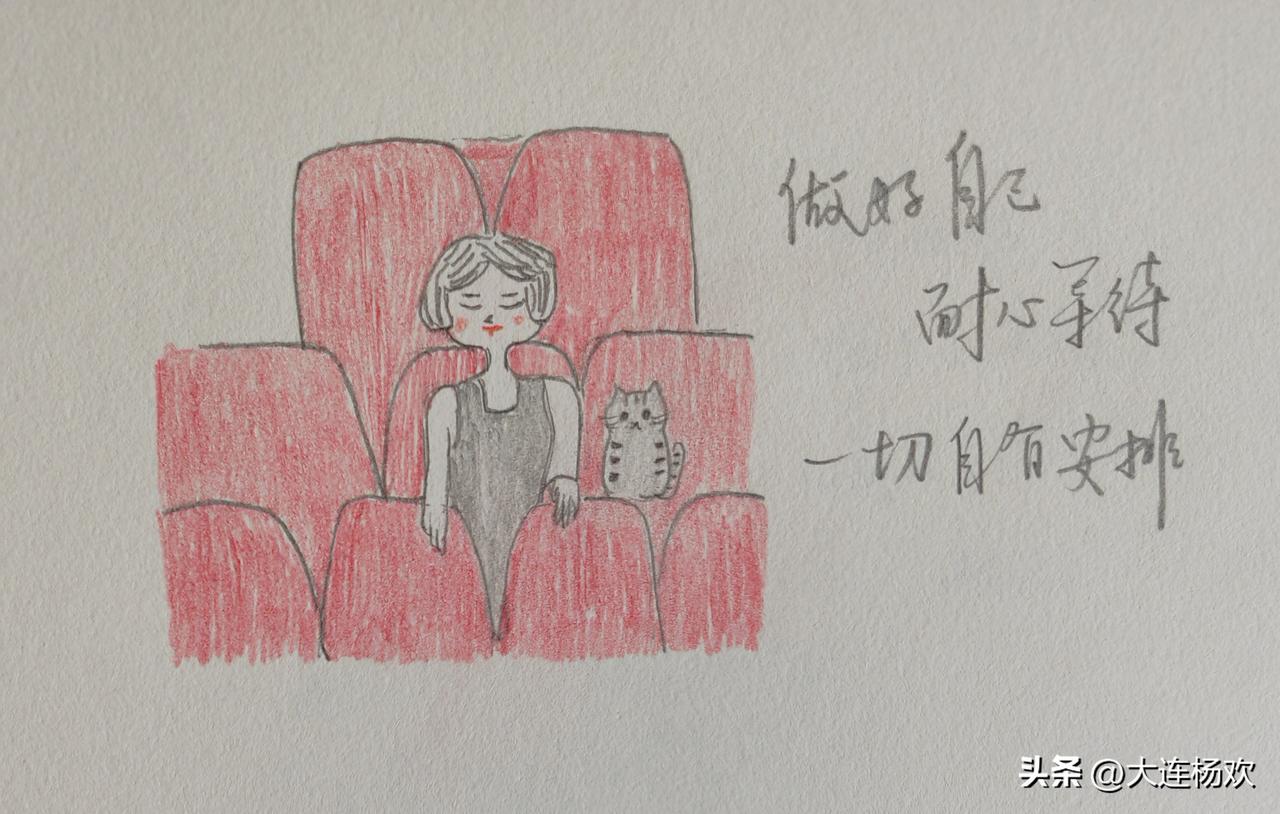 做好自己
耐心等待
一切自有安排
头条 @大连杨欢